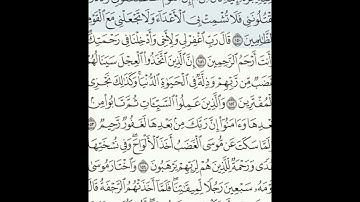 يَقْتُلُونَنِي فَلَا تُشْمِتْ بِيَ الْأَعْدَاءَ وَلَا تَجْعَلْنِي مَعَ الْقَوْمِ
الظَّالِمِينَ ١٥٠ قَالَ رَبِّ اغْفِرْ لِي وَلِأَخِي وَأَدْخِلْنَا فِي رَحْمَتِكَ
وَأَنتَ أَرْحَمُ الرَّاحِمِينَ ١٥١ إِنَّ الَّذِينَ اتَّخَذُوا الْعِجْلَ سَيَنَالُهُمْ
غَضَبٌ مِّن رَّبِّهِمْ وَذِلَّةٌ فِي الْحَيَاةِ الدُّنْيَا وَكَذَٰلِكَ نَجْزِي
الْمُفْتَرِينَ ١٥٢ وَالَّذِينَ عَمِلُوا السَّيِّئَاتِ ثُمَّ تَابُوا مِن
بَعْدِهَا وَآمَنُوا إِنَّ رَبَّكَ مِن بَعْدِهَا لَغَفُورٌ رَّحِيمٌ ١٥٣
وَلَمَّا سَكَتَ عَن مُّوسَى الْغَضَبُ أَخَذَ الْأَلْوَاحَ وَفِي نُسْخَتِهَا
هُدًى وَرَحْمَةٌ لِّلَّذِينَ هُمْ لِرَبِّهِمْ يَرْهَبُونَ ١٥٤ وَاخْتَارَ مُوسَىٰ
قَوْمَهُ سَبْعِينَ رَجُلًا لِّمِيقَاتِنَا فَلَمَّا أَخَذَتْهُمُ الرَّجْفَةُ قَالَ